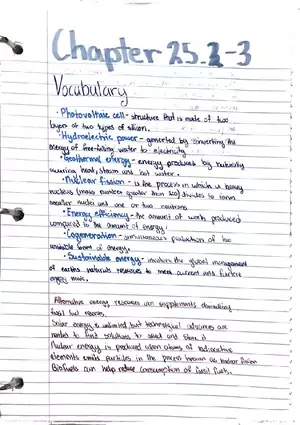 Chapter 25.2-3
Vocabulary
• Photovoltaic cell - structure that is made of two
layers of two types of silicon.
• Hydroelectric power - generted by converting the
energy of free-falling water to electricity.
• Geothermal energy - energy produced by naturally
occuring heat, steam and hot water.
• Nuclear fission - is the process in which a heavy
nucleus (mass number greater than 200) divides to form
smaller nuclei and one or two neutrons.
• Energy efficiency - the amount of work produced
compared to the amount of energy.
• Cogeneration - simultaneous production of two
useable forms of energy.
• Sustainable energy - involves the global management
of earths naturals resources to meet current and future
energy needs.
Alternative energy resources can supplements dwindling
fossil fuel reserves.
Solar energy is unlimited, but technological advances are
needed to find solutions to collect and store it
Nuclear energy is produced when atoms of radioactive
elements emits particles in the process known as nuclear fission
Biofuels can help reduce consumption of fossil fuels.